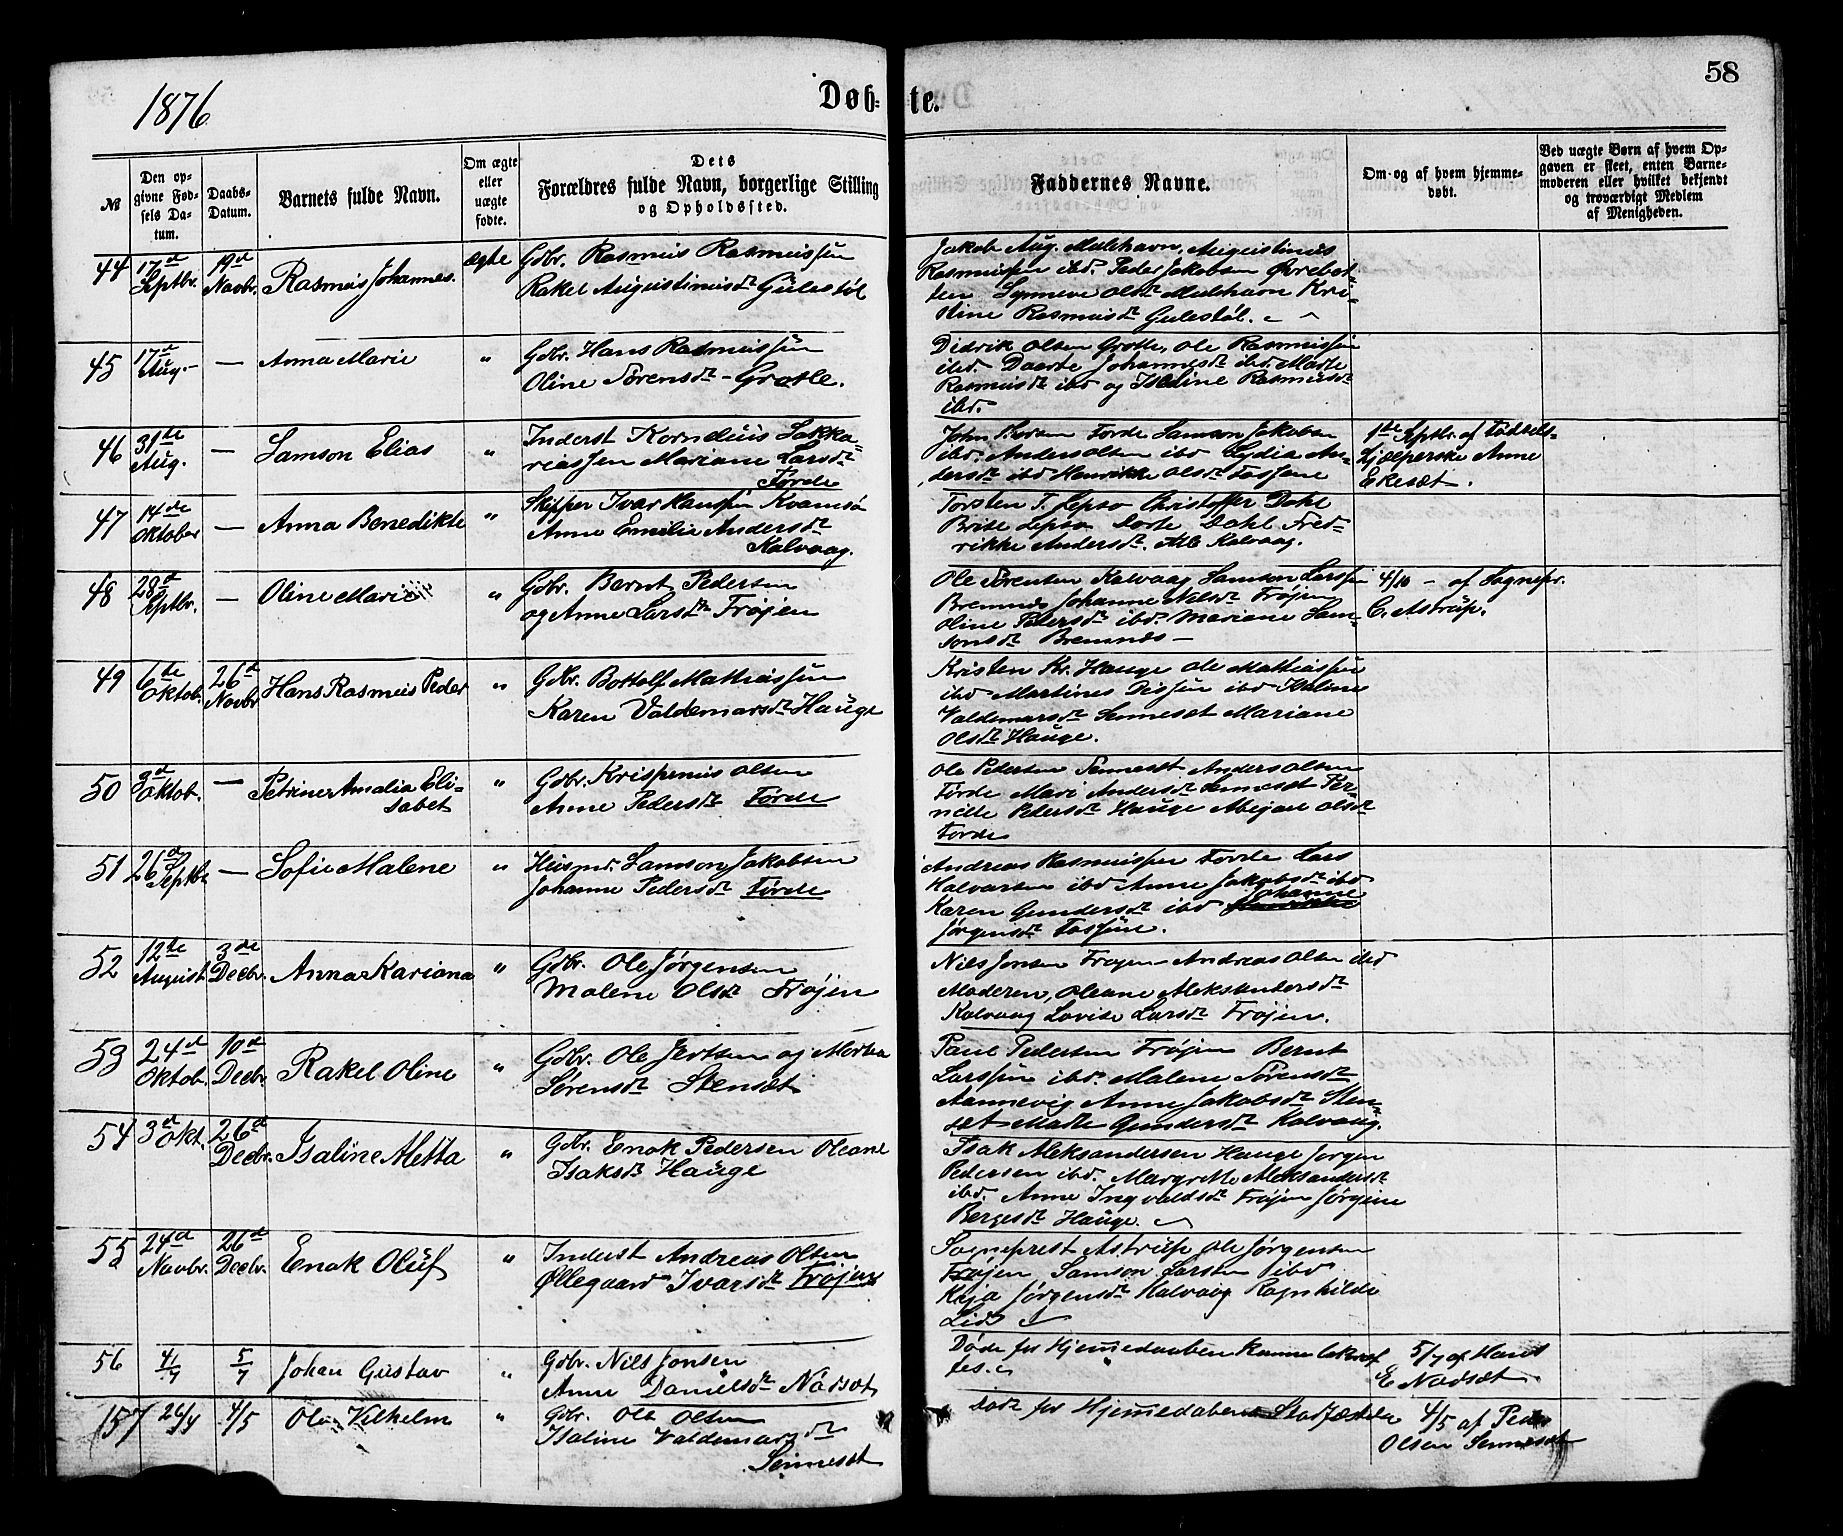 1876
Døb-
te.
58
№
Den op-
givne Fød-
sels Da-
tum.
Daabs-
Datum.
Barnets fulde Navn.
Om ægte
eller
uægte
fødte.
Dets
Forældres fulde Navn, borgerlige Stilling
og Opholdssted.
Faddernes Navne.
Om og af hvem hjemme-
døbt.
Ved uægte Børn af hvem Op-
gaven er skeet, enten Barne-
moderen eller hvilket bekjendt
og troværdigt Medlem
af Menigheden.
44
17d
Septbr.
19d
Novbr.
Rasmus Johannes.
ægte
Gdbr. Rasmus Rasmussen
Rakel Augustinusdr Gulestøl
Jakob Aug. Mulehavn, Augustinus
Rasmussen ibd. Peder Jakobsen Øvrebot-
ten Synneve Olsdr Mulehavn Kri-
stine Rasmusdr Gulestøl.
45
17d
Aug.
—
Anna Marie
"
Gdbr. Hans Rasmussen
Oline Sørensdr - Grotle.
Didrik Olsen Grotle, Ole Rasmussen
ibd. Daarte Johannesdr ibd. Marte
Rasmusdr ibd og Iseline Rasmusdr
ibd.
46
31te
Aug.
—
Samson Elias
"
Inderst Kornelius Sakka-
riassen Mariane Larsdr
Førde
Førde Samson Jakobsen
ibd. Anders Olsen ibd Lydia An-
dersdr ibd Henrikke Olsdr Fosseue
1ste Septbr. af Fødsels-
hjælperske Anne
Ekeset.
47
14de
Oktober
—
Anna Benedikte
"
Skipper Ivar Hansen Kvamsø
Anne Emilie Andersdr
Kalvaag.
Torsten T. Lepsø Christoffer Dahl
Brite Lepsø Dorte Dahl Fred-
rikke Andersdr. Alle Kalvaag.
48
28d
Septbr.
—
Oline Marie
"
Gdbr. Bernt Pedersen
og Anne Larsdr Frøjen
Ole Sørensen Kalvaag Samson Larssen
Bremnes Johanne Nilsdr Frøjen
Oline Petersdr ibd. Mariane Sam-
sonsdr Bremnes —
4/10 - af Sognepr.
C. Astrup.
49
6te
Oktob.
26d
Novbr
Hans Rasmus Peder
"
Gdbr. Bottolf Mathiassen
Karen Valdemarsdr Hauge
Kristen Kr. Hauge Ole Mathiassen
ibd Martines Dissen ibd Helene
Valdemarsdr Senneset Mariane
Olsdr Hauge.
50
3d
Oktob.
—
Petrine Amalia Eli-
sabet
"
Gdbr. Krispenus Olsen
Anne Pedersdr Førde
Ole Pedersen Senneset Anders Olsen
Førde Mari Andersdr Senneset Per-
nille Petersdr Hauge Abigael Olsdr
Førde
51
26d
Septbr
—
Sofie Malene
"
Husmd. Samson Jakobsen
Johanne Pedersdr Førde
Andreas Rasmussen Førde Lars
Halvorsen ibd Anne Jakobsdr ibd
Karen Gundersdr ibd Johanne
Jørgensdr Fosseue.
52
12te
August
3de
Decbr.
Anna Kariana
"
Gdbr. Ole Jørgensen
Malene Olsdr Frøjen
Nils Jonsen Frøjen Andreas Olsen ibd
Moderen, Oleane Aleksandersdr
Kalvaag Lovise Larsdr Frøjen.
53
24d
Oktob.
10d
Decbr.
Rakel Oline
"
Gdbr. Ole Jertsen og Marta
Sørensdr Stensæt
Paul Pedersen Frøjen Bernt
Larssen ibd. Malene Sørensdr
Aannevig Anne Jakobsdr Sten-
sæt Marte Gundersdr Kalvaag.
54
3d Okt.
26d
Decbr.
Isaline Aletta
"
Gdbr. Enok Pedersen Oleane
Isaksdr Hauge
Isak Aleksandersen Hauge Jørgen
Pedersen ibd. Margrethe Aleksandersdr
ibd. Anne Ingvaldsdr Frøjen Jørgine
Bergesdr Hauge
55
24d
Novbr.
26d
Decbr.
Enok Oluf
"
Inderst Andreas Olsen
Øllegaard Ivarsdr Frøjen
Sogneprest Astrup Ole Jørgensen
Frøjen Samson Larsen ibd
Kaja Jørgensdr Kalvaag Ragnhilde
Lid
56
4/7
5/7
Johan Gustav
"
Gdbr. Nils Jonsen
Anne Danielsdr Nødsæt
Døde før Hjemmedaaben kunne bekræf
tes.
5/7 af Hans
E Nødsæt
57
26/4
4/5
Ole Vilhelm
"
Gdbr. Ole Olsen
Isaline Valdemarsdr
Senneset
død før Hjemmedaabens Stadfæstelse
4/5 af Peder
Olsen Senneset